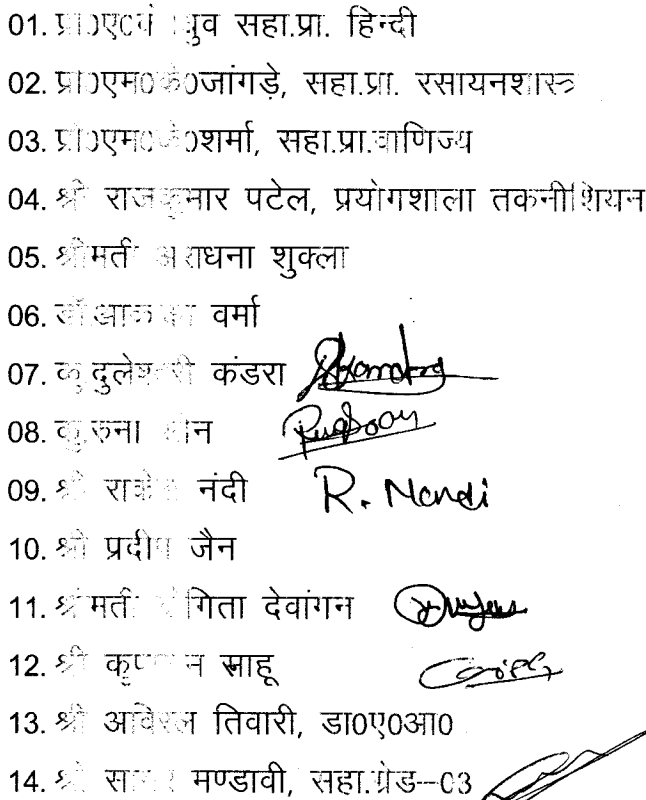 01. ध्रुव सहा.प्रा. हिन्दी
02. प्रो0एम0के0जांगड़े, सहा.प्रा. रसायनशास्त्र
03. प्रो0एम0जे0शर्मा, सहा.प्रा.वाणिज्य
04. श्री राजकुमार पटेल, प्रयोगशाला तकनीशियन
05. श्रीमती अराधना शुक्ला
06. वर्मा
07. कु.दुलेश्वरी कंडरा
08. कु.रुना
09. श्री नंदी R. Nandi
10. श्री प्रदीप जैन
11. श्रीमती देवांगन
12. श्री साहू
13. श्री अविरल तिवारी, डा0ए0आ0
14. श्री मण्डावी, सहा.ग्रेड--03